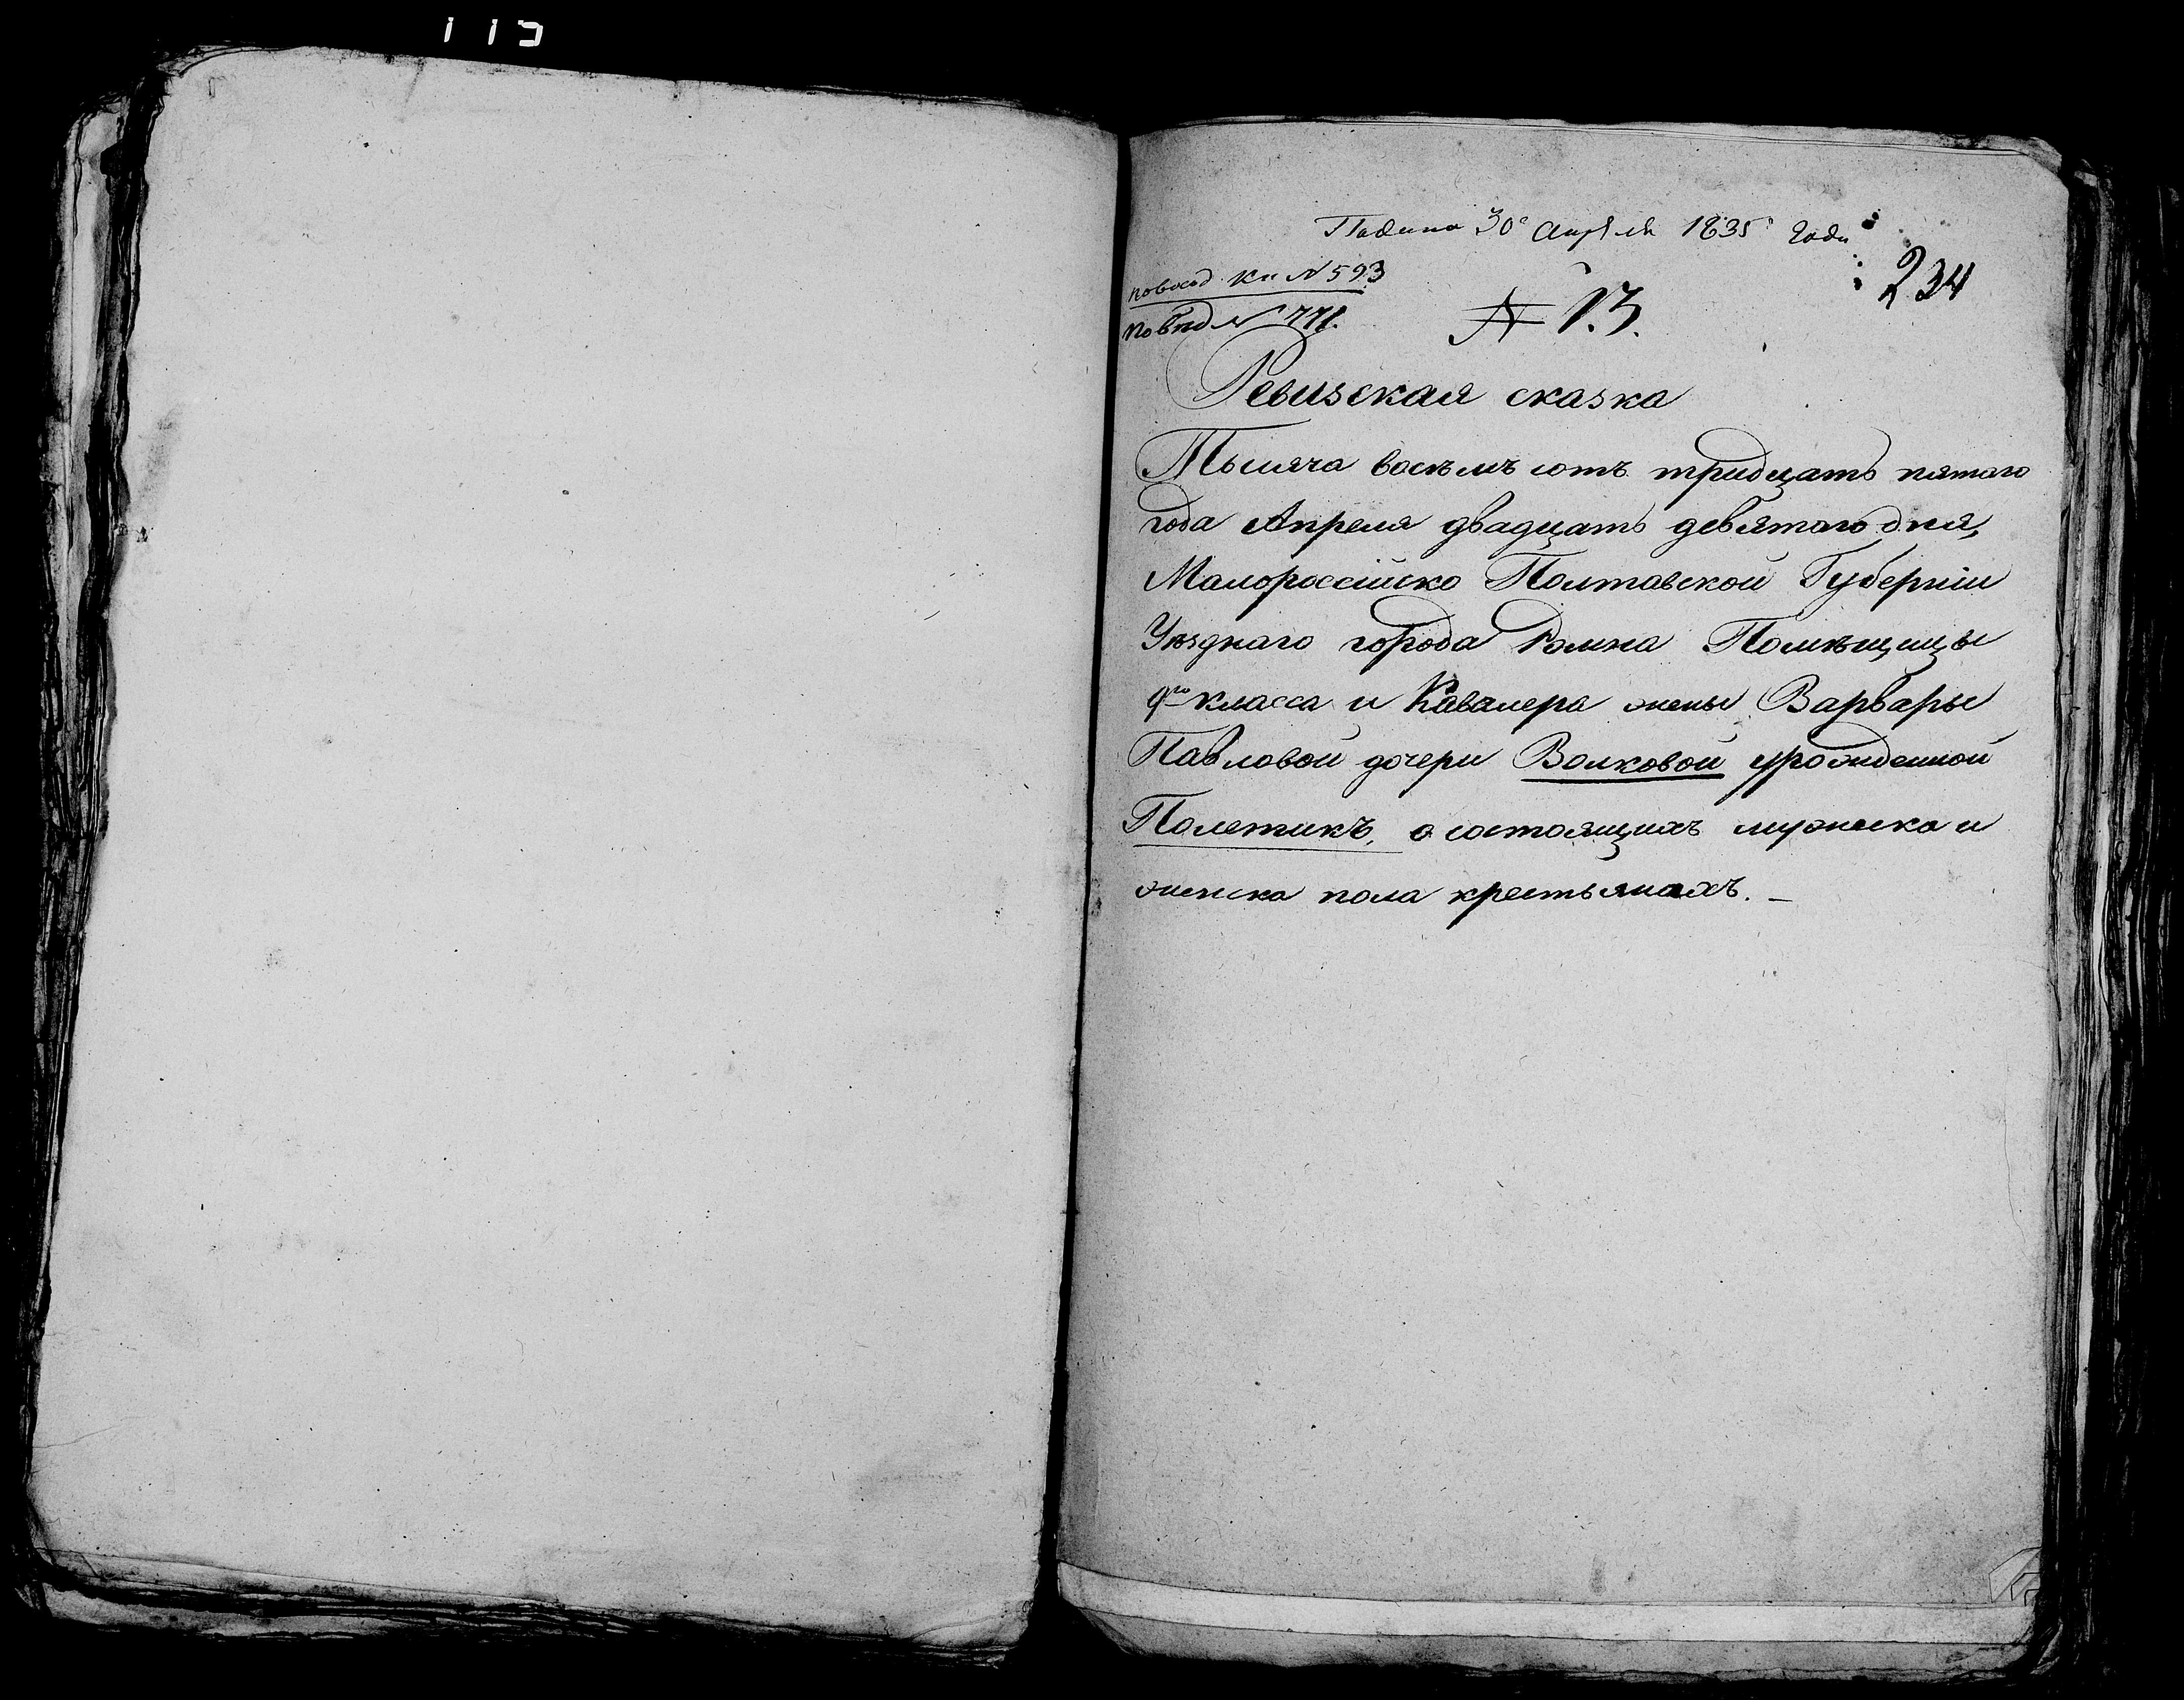 115
Подана 30 Апреля 1835 года
234
по вход. Кн. № 593
№ 13.
Ревизская сказка
Тысяча восемъ сотъ тридцать пятаго
года Апреля двадцать девятого дня,
Малороссійско Полтавской Губерніи
Уѣзднаго города Ромна Помѣщицы
9го класса и Кавалера жены Варвары
Павловой дочери Волковой урожденной
Полетикъ, о состоящихъ мужеска и
женска пола крестьянахъ. —